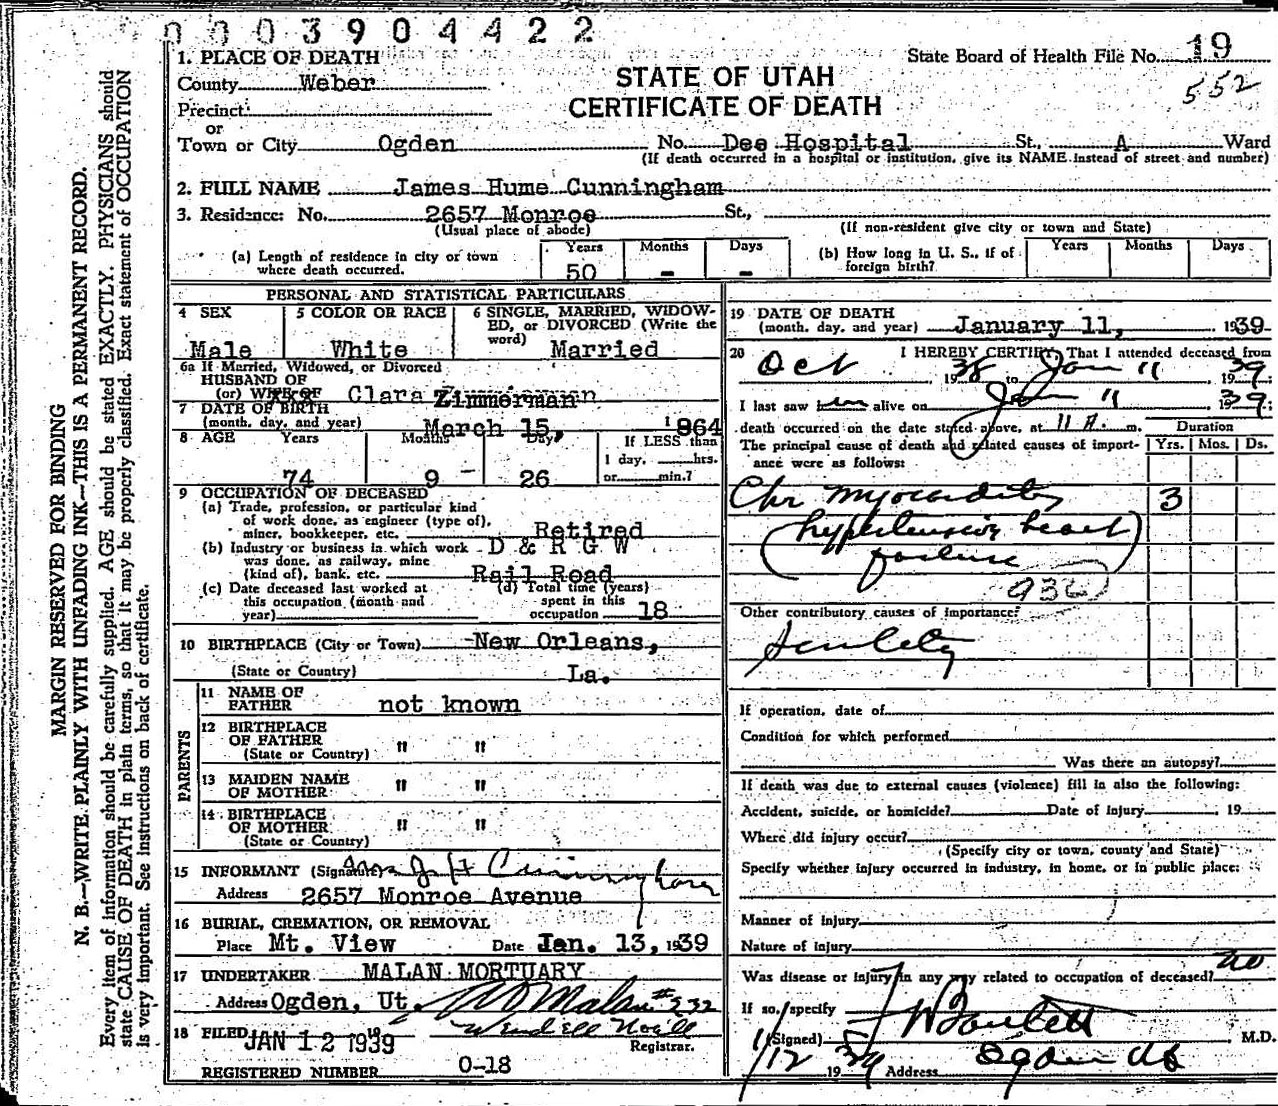 0003904422
State Board of Health File No. 19
552
STATE OF UTAH
CERTIFICATE OF DEATH
1. PLACE OF DEATH
County Weber
Precinct
or
Town or City Ogden No. Dee Hospital St., A Ward
(If death occurred in a hospital or institution, give its NAME instead of street and number)
2. FULL NAME James Hume Cunningham
3. Residence: No. 2657 Monroe St.,
(Usual place of abode) (If non-resident give city or town and State)
(a) Length of residence in city or town where death occurred. Years 50 Months - Days -
(b) How long in U. S., if of foreign birth? Years Months Days
PERSONAL AND STATISTICAL PARTICULARS
4 SEX Male
5 COLOR OR RACE White
6 SINGLE, MARRIED, WIDOWED, or DIVORCED (Write the word) Married
6a If Married, Widowed, or Divorced
HUSBAND OF
(or) WIFE OF Clara Zimmerman
7 DATE OF BIRTH
(month, day, and year) March 15, 1864
8 AGE Years 74 Months 9 - Days 26 If LESS than 1 day, hrs. or min.?
9 OCCUPATION OF DECEASED
(a) Trade, profession, or particular kind
of work done, as engineer (type of),
miner, bookkeeper, etc. Retired
(b) Industry or business in which work D & R G W
was done, as railway, mine
(kind of), bank, etc. Rail Road
(c) Date deceased last worked at this occupation (month and year)
(d) Total time (years) spent in this occupation 18
10 BIRTHPLACE (City or Town) New Orleans,
(State or Country) La.
PARENTS
11 NAME OF FATHER not known
12 BIRTHPLACE OF FATHER (State or Country) " "
13 MAIDEN NAME OF MOTHER " "
14 BIRTHPLACE OF MOTHER (State or Country) " "
15 INFORMANT (Signature) Mrs J H Cunningham
Address 2657 Monroe Avenue
16 BURIAL, CREMATION, OR REMOVAL
Place Mt. View Date Jan. 13, 1939
17 UNDERTAKER MALAN MORTUARY
Address Ogden, Ut. Malan #232
18 FILED JAN 12 1939 19
Registrar.
REGISTERED NUMBER 0-18
19 DATE OF DEATH
(month, day, and year) January 11, 1939
20 I HEREBY CERTIFY, That I attended deceased from
Oct, 1938 to Jan 11, 1939
I last saw him alive on Jan 11 1939;
death occurred on the date stated above, at 11 A. m.
The principal cause of death and related causes of importance were as follows:
Duration
Yrs. Mos. Ds.
Chr myocarditis 3
(hypertensive heart
failure)
Other contributory causes of importance:
Senility
If operation, date of
Condition for which performed
Was there an autopsy?
If death was due to external causes (violence) fill in also the following:
Accident, suicide or homicide? Date of Injury 19
Where did injury occur?
(Specify city or town, county and State)
Specify whether injury occurred in industry, in home, or in public place:
Manner of injury
Nature of injury
Was disease or injury in any way related to occupation of deceased? no
If so, specify
(Signed) Bartlett M.D.
1/12 1939 Address Ogden Ut
MARGIN RESERVED FOR BINDING
N. B.—WRITE PLAINLY WITH UNFADING INK—THIS IS A PERMANENT RECORD.
Every item of information should be carefully supplied. AGE should be stated EXACTLY. PHYSICIANS should
state CAUSE OF DEATH in plain terms, so that it may be properly classified. Exact statement of OCCUPATION
is very important. See instructions on back of certificate.